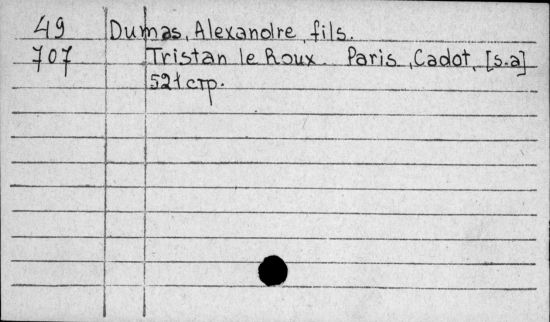 49 Dumas, Alexandre, fils.
707 Tristan le Roux. Paris, Cadot, [s.a]
521 стр.